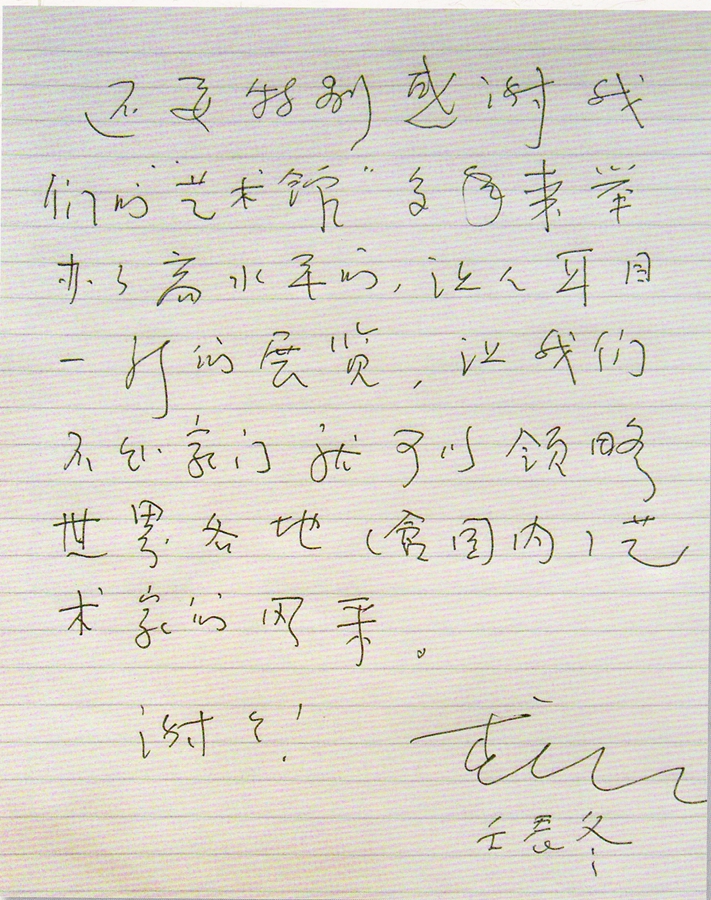 还要特别感谢我
们的"艺术馆"多年来举
办了高水平的,让人耳目
一新的展览,让我们
不出家门就可以领略
世界各地(含国内)艺
术家的风采。
谢谢!
壬辰冬